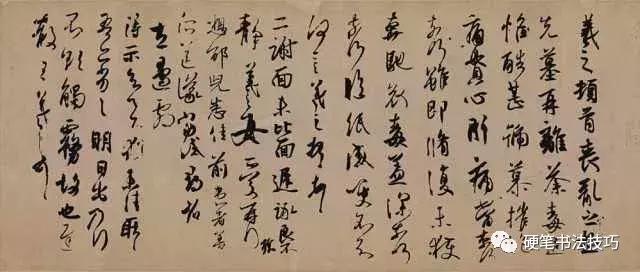 羲之頓首喪亂之極
先墓再離荼毒追
惟酷甚號慕摧絕
痛貫心肝痛當奈何
奈何雖即脩復未獲
奔馳哀毒益深奈何
奈何臨紙感哽不知
何言羲之頓首頓首
二謝面未比面遲詠良不
靜羲之女愛再拜
想邵兒悉佳前患者善
所送議當試尋省
左邊劇
得示知足下猶未佳耿耿
吾亦劣劣明日出乃行
不欲觸霧故也遲
散王羲之頓首
硬笔书法技巧